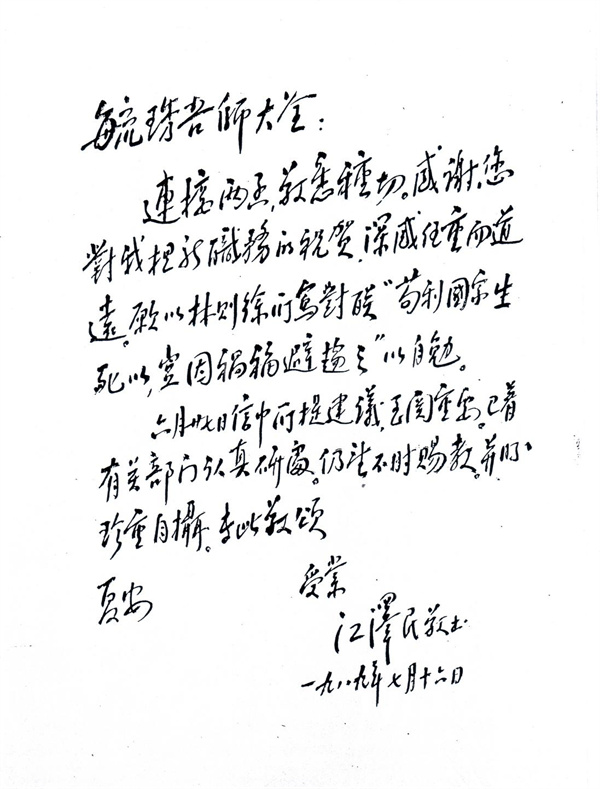 毓琇吾师大鉴：
連接两函，敬悉種切。感谢您
對我担新職務的祝贺，深感任重而道
遠。愿以林则徐所寫對联“苟利國家生
死以，豈因禍福避趨之”以自勉。
六月廿七日信中所提建議，至関重要。已着
有关部门认真研處。仍望不时賜教。并盼
珍重自攝。专此敬颂
夏安
受業
江澤民敬上
一九八九年七月十六日